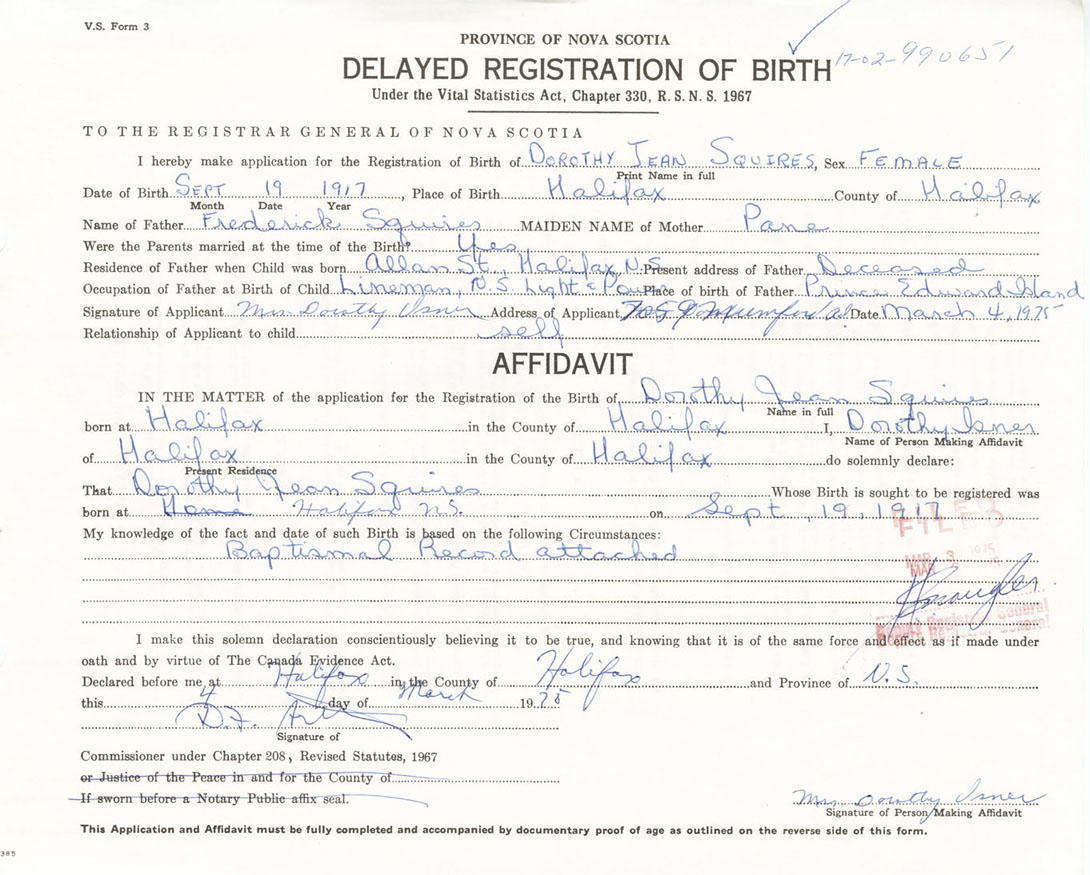 V.S. Form 3
PROVINCE OF NOVA SCOTIA
DELAYED REGISTRATION OF BIRTH 17-02-990651
Under the Vital Statistics Act, Chapter 330, R.S.N.S. 1967
TO THE REGISTRAR GENERAL OF NOVA SCOTIA
I hereby make application for the Registration of Birth of DOROTHY JEAN SQUIRES, Sex FEMALE
Print Name in full
Date of Birth SEPT 19 1917, Place of Birth Halifax County of Halifax
Month Date Year
Name of Father Frederick Squires MAIDEN NAME of Mother Pane
Were the Parents married at the time of the Birth? Yes
Residence of Father when Child was born Allan St, Halifax, N.S. Present address of Father Deceased
Occupation of Father at Birth of Child Lineman, N.S. Light & Place of birth of Father Prince Edward Island
Signature of Applicant Mrs Dorothy Isner Address of Applicant Mumford Date March 4, 1975
Relationship of Applicant to child self
AFFIDAVIT
IN THE MATTER of the application for the Registration of the Birth of Dorothy Jean Squires
Name in full
born at Halifax in the County of Halifax I, Dorothy Isner
Name of Person Making Affidavit
of Halifax in the County of Halifax do solemnly declare:
Present Residence
That Dorothy Jean Squires Whose Birth is sought to be registered was
born at Home Halifax N.S. on Sept, 19, 1917
My knowledge of the fact and date of such Birth is based on the following Circumstances:
Baptismal Record attached
FILED
MAR 3 1975
Deputy Registrar General
I make this solemn declaration conscientiously believing it to be true, and knowing that it is of the same force and effect as if made under
oath and by virtue of The Canada Evidence Act.
Declared before me at Halifax in the County of Halifax and Province of N.S.
this 4 day of March 1975
D.F.
Signature of
Commissioner under Chapter 208, Revised Statutes, 1967
or Justice of the Peace in and for the County of
If sworn before a Notary Public affix seal.
Mrs Dorothy Isner
Signature of Person Making Affidavit
This Application and Affidavit must be fully completed and accompanied by documentary proof of age as outlined on the reverse side of this form.
385